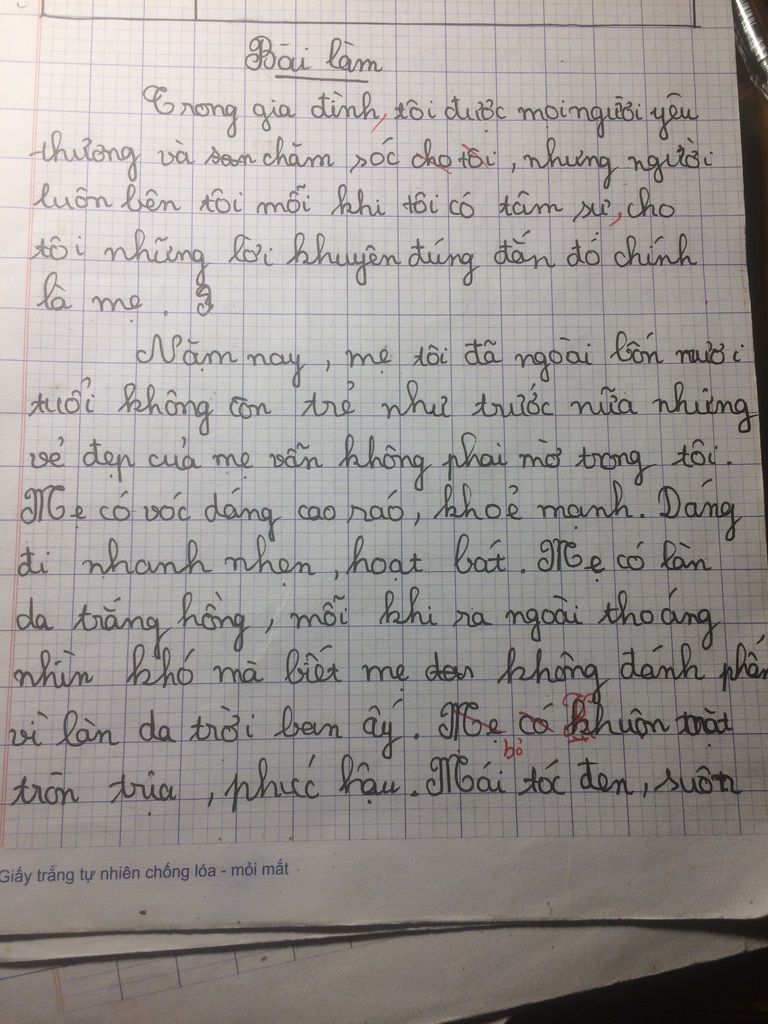 Bài làm
Trong gia đình, tôi được mọi người yêu
thương và chăm sóc cho tôi, nhưng người
luôn bên tôi mỗi khi tôi có tâm sự, cho
tôi những lời khuyên đúng đắn đó chính
là mẹ.
Năm nay, mẹ tôi đã ngoài bốn mươi
tuổi không còn trẻ như trước nữa nhưng
vẻ đẹp của mẹ vẫn không phai mờ trong tôi.
Mẹ có vóc dáng cao ráo, khoẻ mạnh. Dáng
đi nhanh nhẹn, hoạt bát. Mẹ có làn
da trắng hồng, mỗi khi ra ngoài thoáng
nhìn khó mà biết mẹ không đánh phấn
vì làn da trời ban ấy. Mẹ có khuôn mặt
bỏ
tròn trịa, phúc hậu. Mái tóc đen, suôn
Giấy trắng tự nhiên chống lóa - mỏi mắt